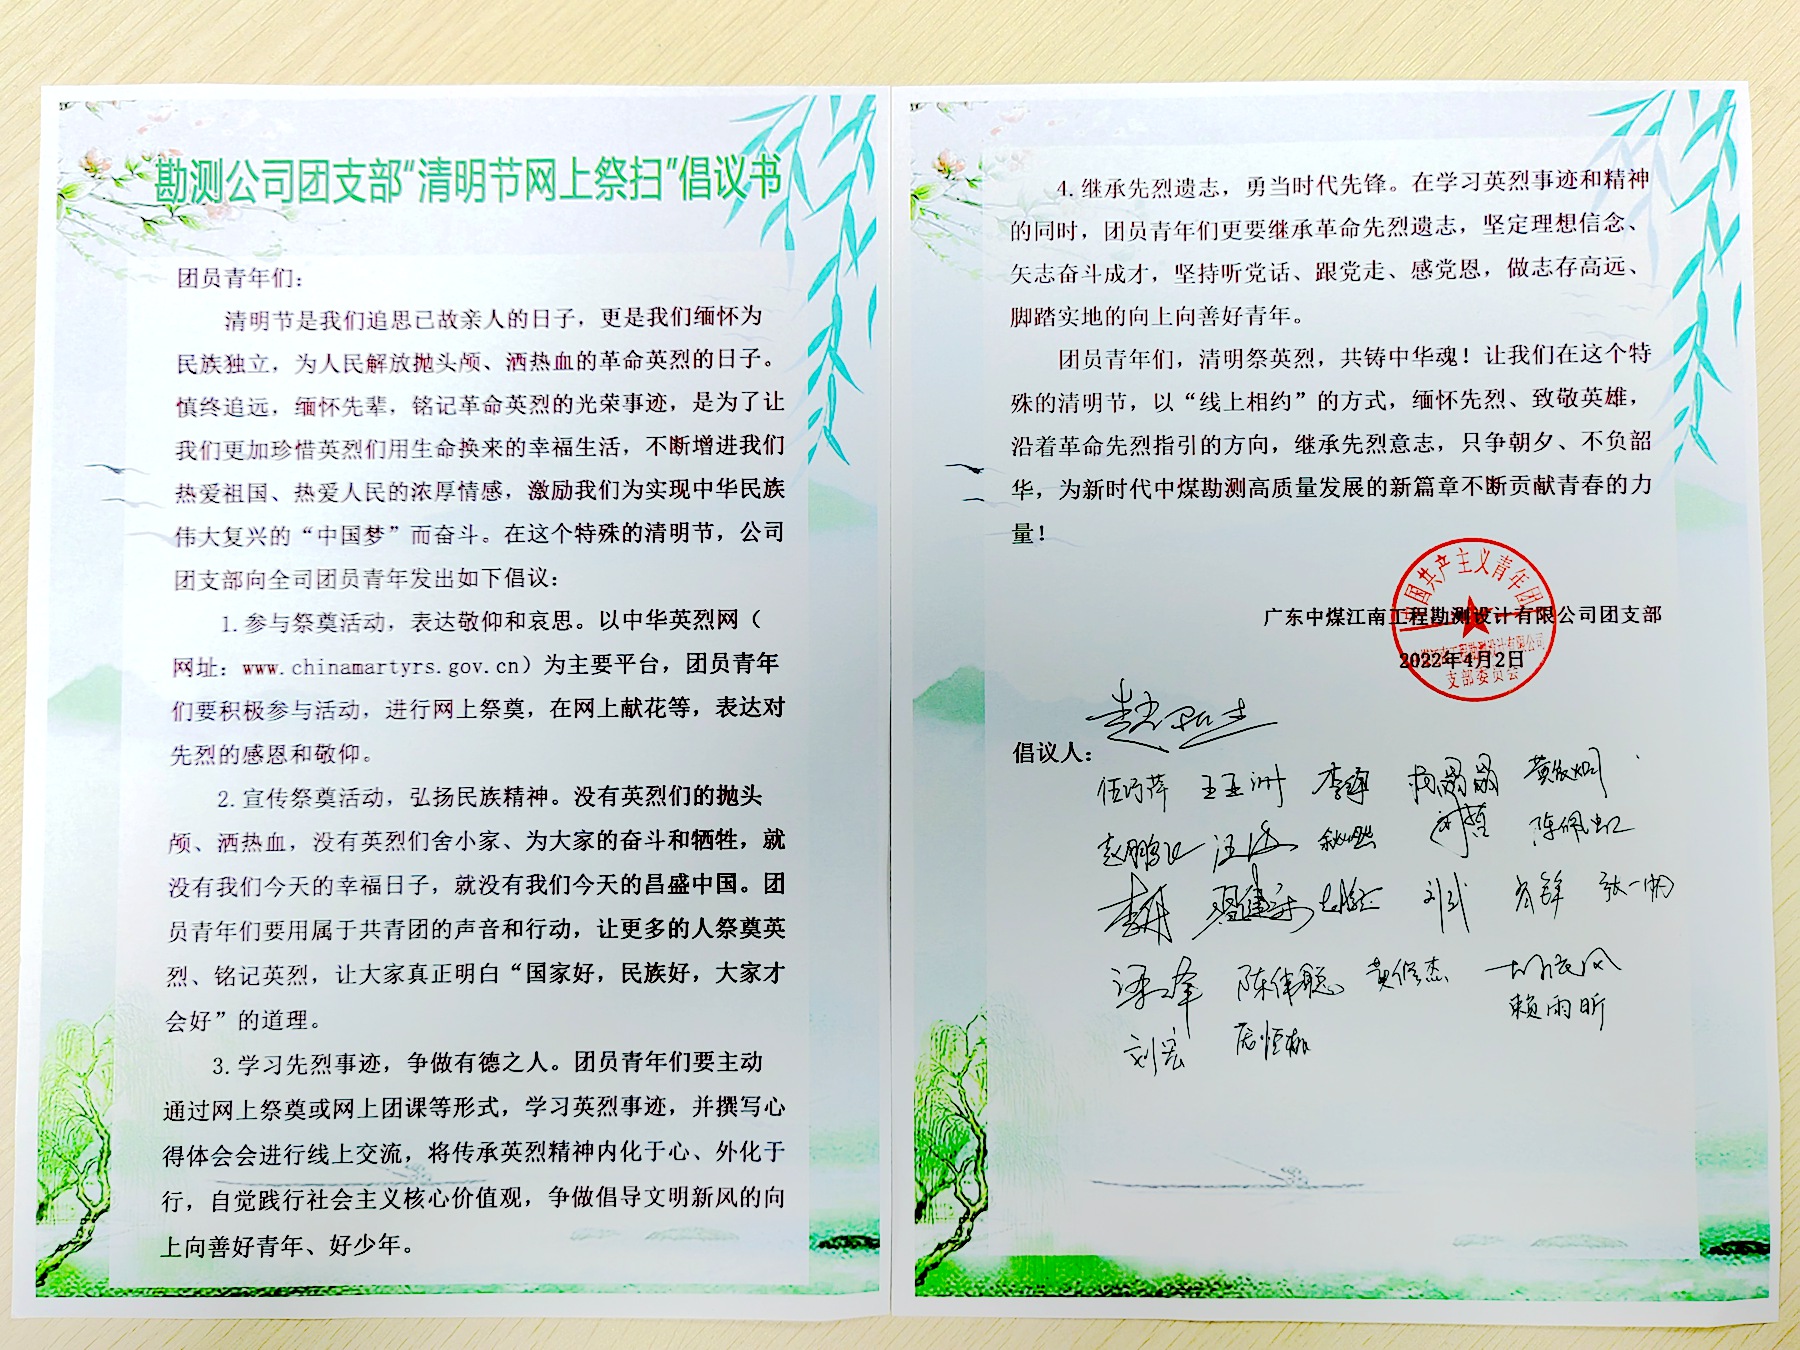 勘测公司团支部“清明节网上祭扫”倡议书
团员青年们：
清明节是我们追思已故亲人的日子，更是我们缅怀为
民族独立，为人民解放抛头颅、洒热血的革命英烈的日子。
慎终追远，缅怀先辈，铭记革命英烈的光荣事迹，是为了让
我们更加珍惜英烈们用生命换来的幸福生活，不断增进我们
热爱祖国、热爱人民的浓厚情感，激励我们为实现中华民族
伟大复兴的“中国梦”而奋斗。在这个特殊的清明节，公司
团支部向全司团员青年发出如下倡议：
1.参与祭奠活动，表达敬仰和哀思。以中华英烈网（
网址：www.chinamartyrs.gov.cn）为主要平台，团员青年
们要积极参与活动，进行网上祭奠，在网上献花等，表达对
先烈的感恩和敬仰。
2.宣传祭奠活动，弘扬民族精神。没有英烈们的抛头
颅、洒热血，没有英烈们舍小家、为大家的奋斗和牺牲，就
没有我们今天的幸福日子，就没有我们今天的昌盛中国。团
员青年们要用属于共青团的声音和行动，让更多的人祭奠英
烈、铭记英烈，让大家真正明白“国家好，民族好，大家才
会好”的道理。
3.学习先烈事迹，争做有德之人。团员青年们要主动
通过网上祭奠或网上团课等形式，学习英烈事迹，并撰写心
得体会会进行线上交流，将传承英烈精神内化于心、外化于
行，自觉践行社会主义核心价值观，争做倡导文明新风的向
上向善好青年、好少年。
4.继承先烈遗志，勇当时代先锋。在学习英烈事迹和精神
的同时，团员青年们更要继承革命先烈遗志，坚定理想信念、
矢志奋斗成才，坚持听党话、跟党走、感党恩，做志存高远、
脚踏实地的向上向善好青年。
团员青年们，清明祭英烈，共铸中华魂！让我们在这个特
殊的清明节，以“线上相约”的方式，缅怀先烈、致敬英雄，
沿着革命先烈指引的方向，继承先烈意志，只争朝夕、不负韶
华，为新时代中煤勘测高质量发展的新篇章不断贡献青春的力
量！
中国共产主义青年团
广东中煤江南工程勘测设计有限公司团支部
2022年4月2日
支部委员会
倡议人：
王亚洲
陈佩虹
刘武 张一帆
陈伟聪 黄俊杰
赖雨昕
刘宏